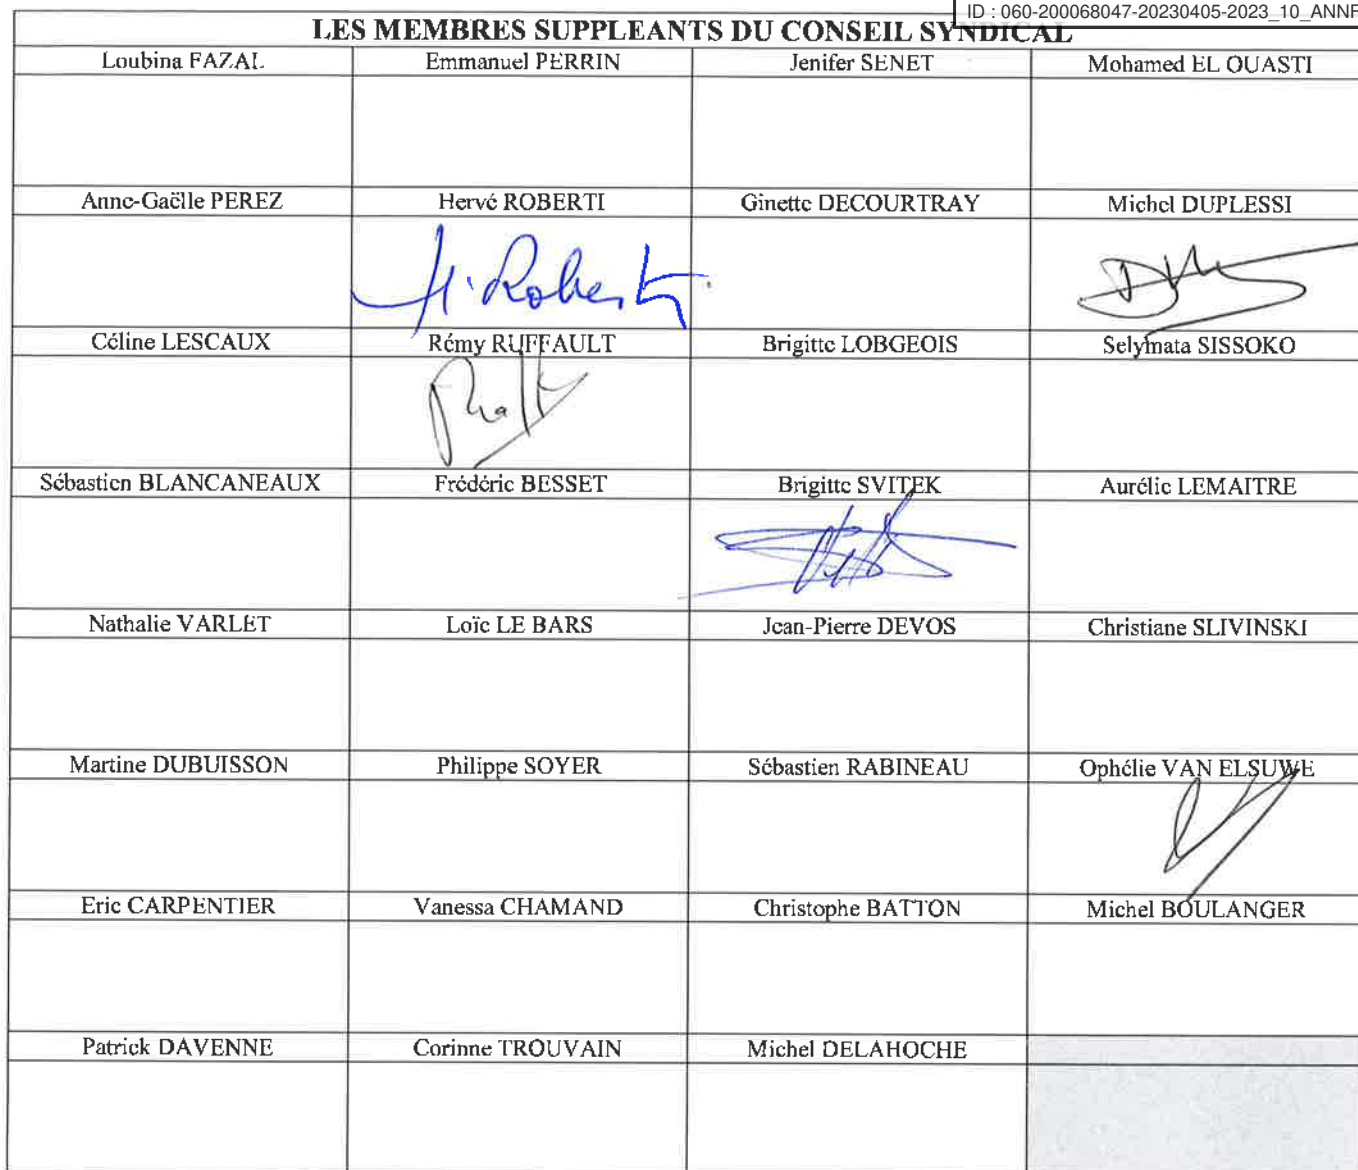 ID : 060-200068047-20230405-2023_10_ANNE
LES MEMBRES SUPPLEANTS DU CONSEIL SYNDICAL
Loubina FAZAL Emmanuel PERRIN Jenifer SENET Mohamed EL OUASTI
Anne-Gaëlle PEREZ Hervé ROBERTI Ginette DECOURTRAY Michel DUPLESSI
H. Roberti
Céline LESCAUX Rémy RUFFAULT Brigitte LOBGEOIS Selymata SISSOKO
Sébastien BLANCANEAUX Frédéric BESSET Brigitte SVITEK Aurélie LEMAITRE
Nathalie VARLET Loïc LE BARS Jean-Pierre DEVOS Christiane SLIVINSKI
Martine DUBUISSON Philippe SOYER Sébastien RABINEAU Ophélie VAN ELSUWE
Eric CARPENTIER Vanessa CHAMAND Christophe BATTON Michel BOULANGER
Patrick DAVENNE Corinne TROUVAIN Michel DELAHOCHE